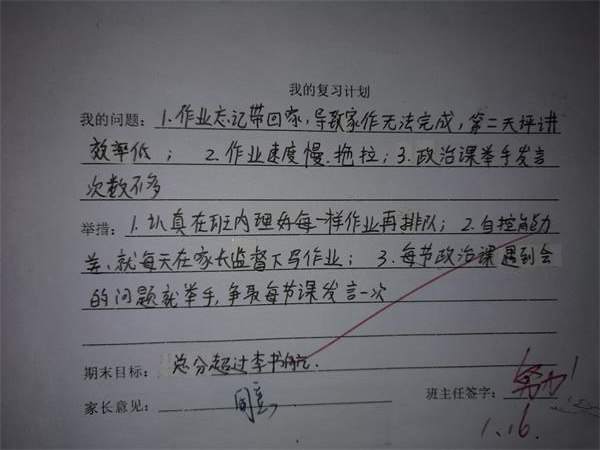 我的复习计划
我的问题：1.作业忘记带回家，导致家作无法完成，第二天评讲
效率低；2.作业速度慢、拖拉；3.政治课举手发言
次数不多
举措：1.认真在班内理好每一样作业再排队；2.自控能力
差、就每天在家长监督下写作业；3.每节政治课遇到会
的问题就举手，争取每节课发言一次
期末目标：总分超过李书
家长意见：同意
班主任签字：努力！
1.16.